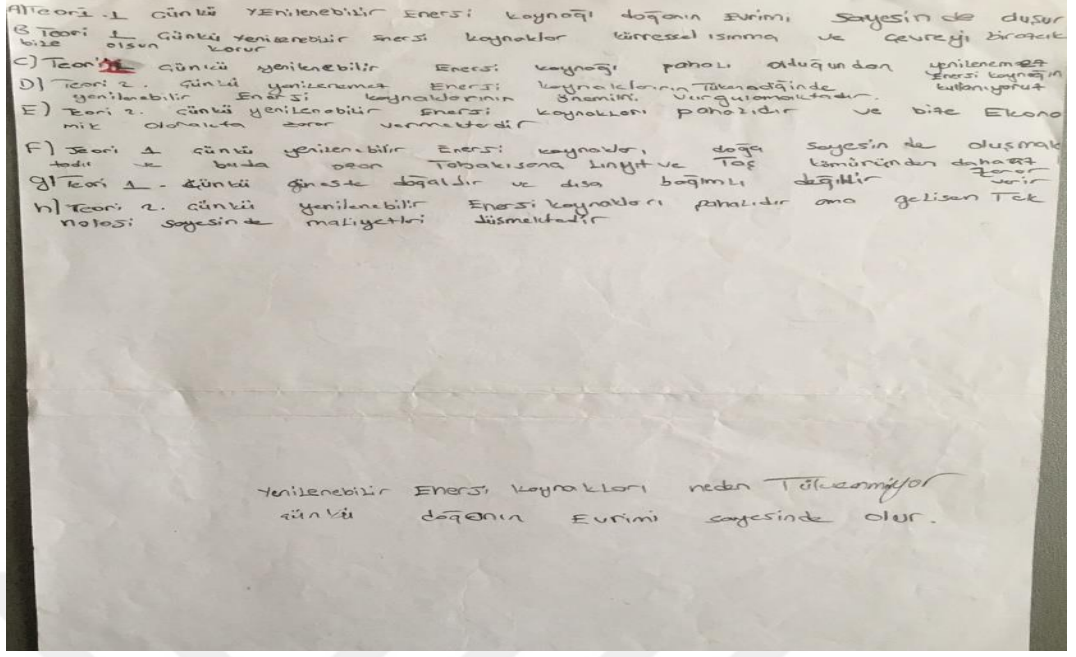 A) Teori - 1 Günkü YEnilenebilir Enersi kaynağı doğanın Evrimi sayesin de duşur
B Teori 1 Günkü Yenilenebilir Enersi kaynaklar küressel ısınma ve çevreyi birazcık
bize olsun korur
C) Teori Günkü yenilenebilir Enersi kaynağı pahalı olduğundan yenilenemez
Enersi kaynağın
kullanıyoruz
D) Teori 2. Günkü yenilenemez Enersi kaynaklarının Tükenadğinde
yenilenebilir Enersi kaynaklarının önamini vurgulamaktadır.
E) Teori 2. Günkü yenilenebilir Enersi kaynakları pahalıdır ve bize Ekono
mik olarakta zarar vermektedir
F) Teori 1 Günkü yenilenebilir Enersi kaynakları, doğa sayesin de oluşmak
tadır ve buda Tabakısana Linyit ve Taş kömüründen daha az
zarar
verir
g) Teori 1 - Günkü güneste doğaldır ve dısa bağımlı değildir
h) Teori 2. Günkü yenilenebilir Enersi kaynakları pahalıdır ama gelisen Tek
nolosi sayesinde maliyetleri düsmektedir
Yenilenebilir Enersi kaynakları neden Tükenmiyor
Günkü doğanın Evrimi sayesinde olur.